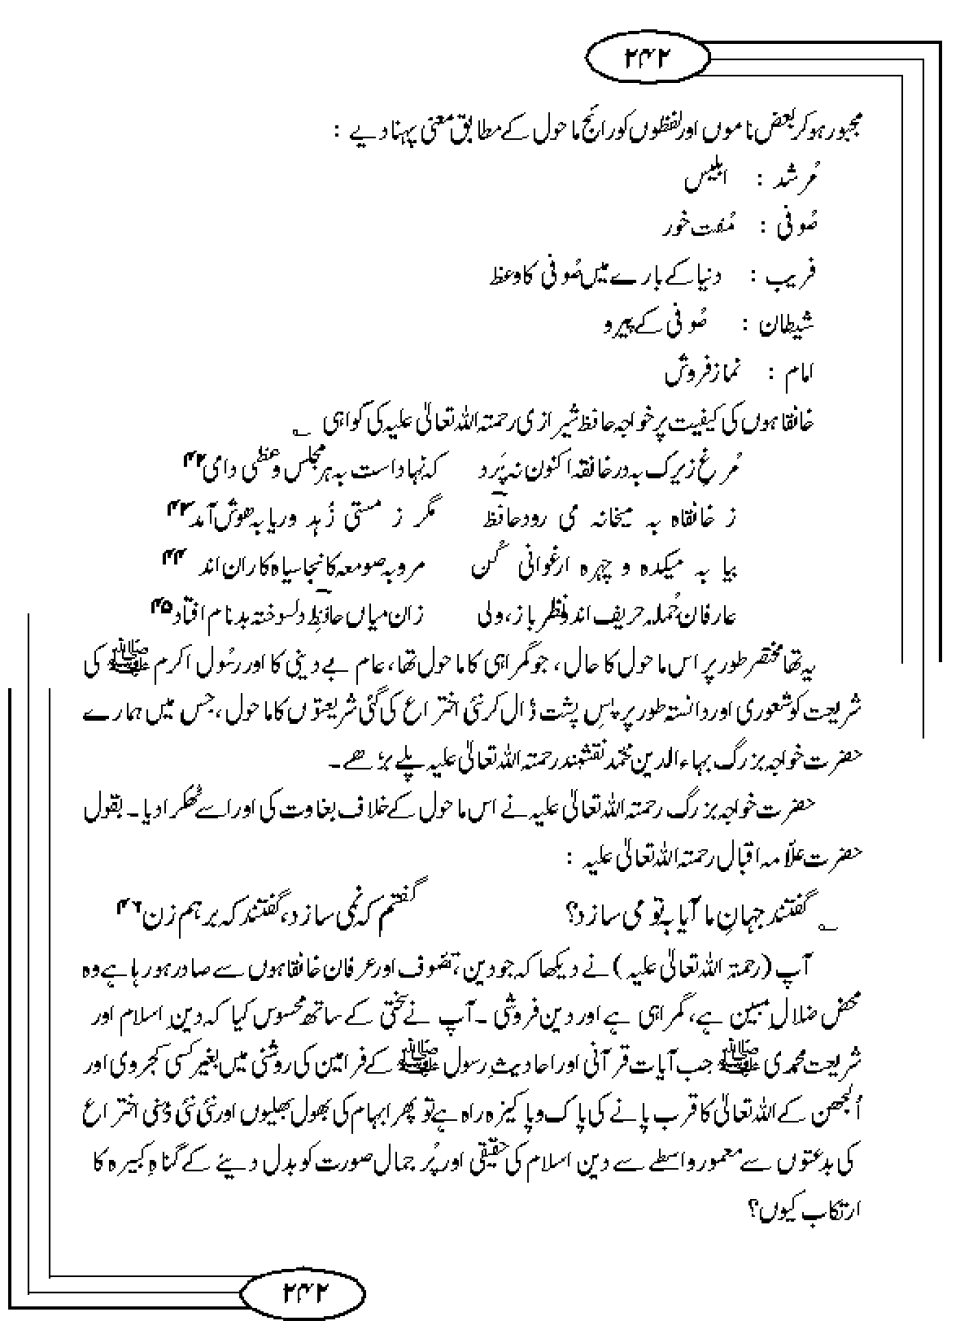 ۲۴۲
مجبور ہو کر بعض ناموں اور لفظوں کو رائج ماحول کے مطابق معنی پہنا دیے :
مُرشد : ابلیس
صُوفی : مُفت خور
فریب : دنیا کے بارے میں صُوفی کا وعظ
شیطان : صُوفی کے پیرو
امام : نماز فروش
خانقاہوں کی کیفیت پر خواجہ حافظ شیرازی رحمتہ اللہ تعالیٰ علیہ کی گواہی ؎
مُرغِ زیرک بہ در خانقہ اکنون نہ پَرد کہ نہاد است بہ ہر مجلس وعظی دامی۴۲
ز خانقاہ بہ میخانہ می رود حافظ مگر ز مستی زُہد و ریا بہ ھوش آمد۴۳
بیا بہ میکدہ و چہرہ ارغوانی کُن مرو بہ صومعہ کانجا سیاہ کاران اند ۴۴
عارفان جُملہ حریف اند و نظر باز، ولی زان میاں حافظِ دلسوختہ بدنام افتاد۴۵
یہ تھا مختصر طور پر اس ماحول کا حال ، جو گمراہی کا ماحول تھا، عام بے دینی کا اور رسُول اکرم ﷺ کی
شریعت کو شعوری اور دانستہ طور پر پسِ پشت ڈال کر نئی اختراع کی گئی شریعتوں کا ماحول ، جس میں ہمارے
حضرت خواجہ بزرگ بہاء الدین محمد نقشبند رحمتہ اللہ تعالیٰ علیہ پلے بڑھے۔
حضرت خواجہ بزرگ رحمتہ اللہ تعالیٰ علیہ نے اس ماحول کے خلاف بغاوت کی اور اسے ٹھکرا دیا۔ بقول
حضرت علاّمہ اقبال رحمتہ اللہ تعالیٰ علیہ :
؎ گفتند جہانِ ما آیا بہ تو می سازد؟ گفتم کہ نمی سازد، گفتند کہ برہم زن۴۶
آپ (رحمتہ اللہ تعالیٰ علیہ ) نے دیکھا کہ جو دین ، تصّوف اور عرفان خانقاہوں سے صادر ہو رہا ہے وہ
محض ضلالِ مبین ہے، گمراہی ہے اور دین فروشی ۔ آپ نے سختی کے ساتھ محسوس کیا کہ دینِ اسلام اور
شریعت محمدی ﷺ جب آیات قرآنی اور احادیثِ رسول ﷺ کے فرامین کی روشنی میں بغیر کسی کجروی اور
اُلجھن کے اللہ تعالیٰ کا قرب پانے کی پاک و پاکیزہ راہ ہے تو پھر ابہام کی بھول بھلیوں اور نئی نئی ذہنی اختراع
کی بدعتوں سے معمور واسطے سے دین اسلام کی حقیقی اور پُر جمال صورت کو بدل دینے کے گناہِ کبیرہ کا
ارتکاب کیوں؟
۲۴۲